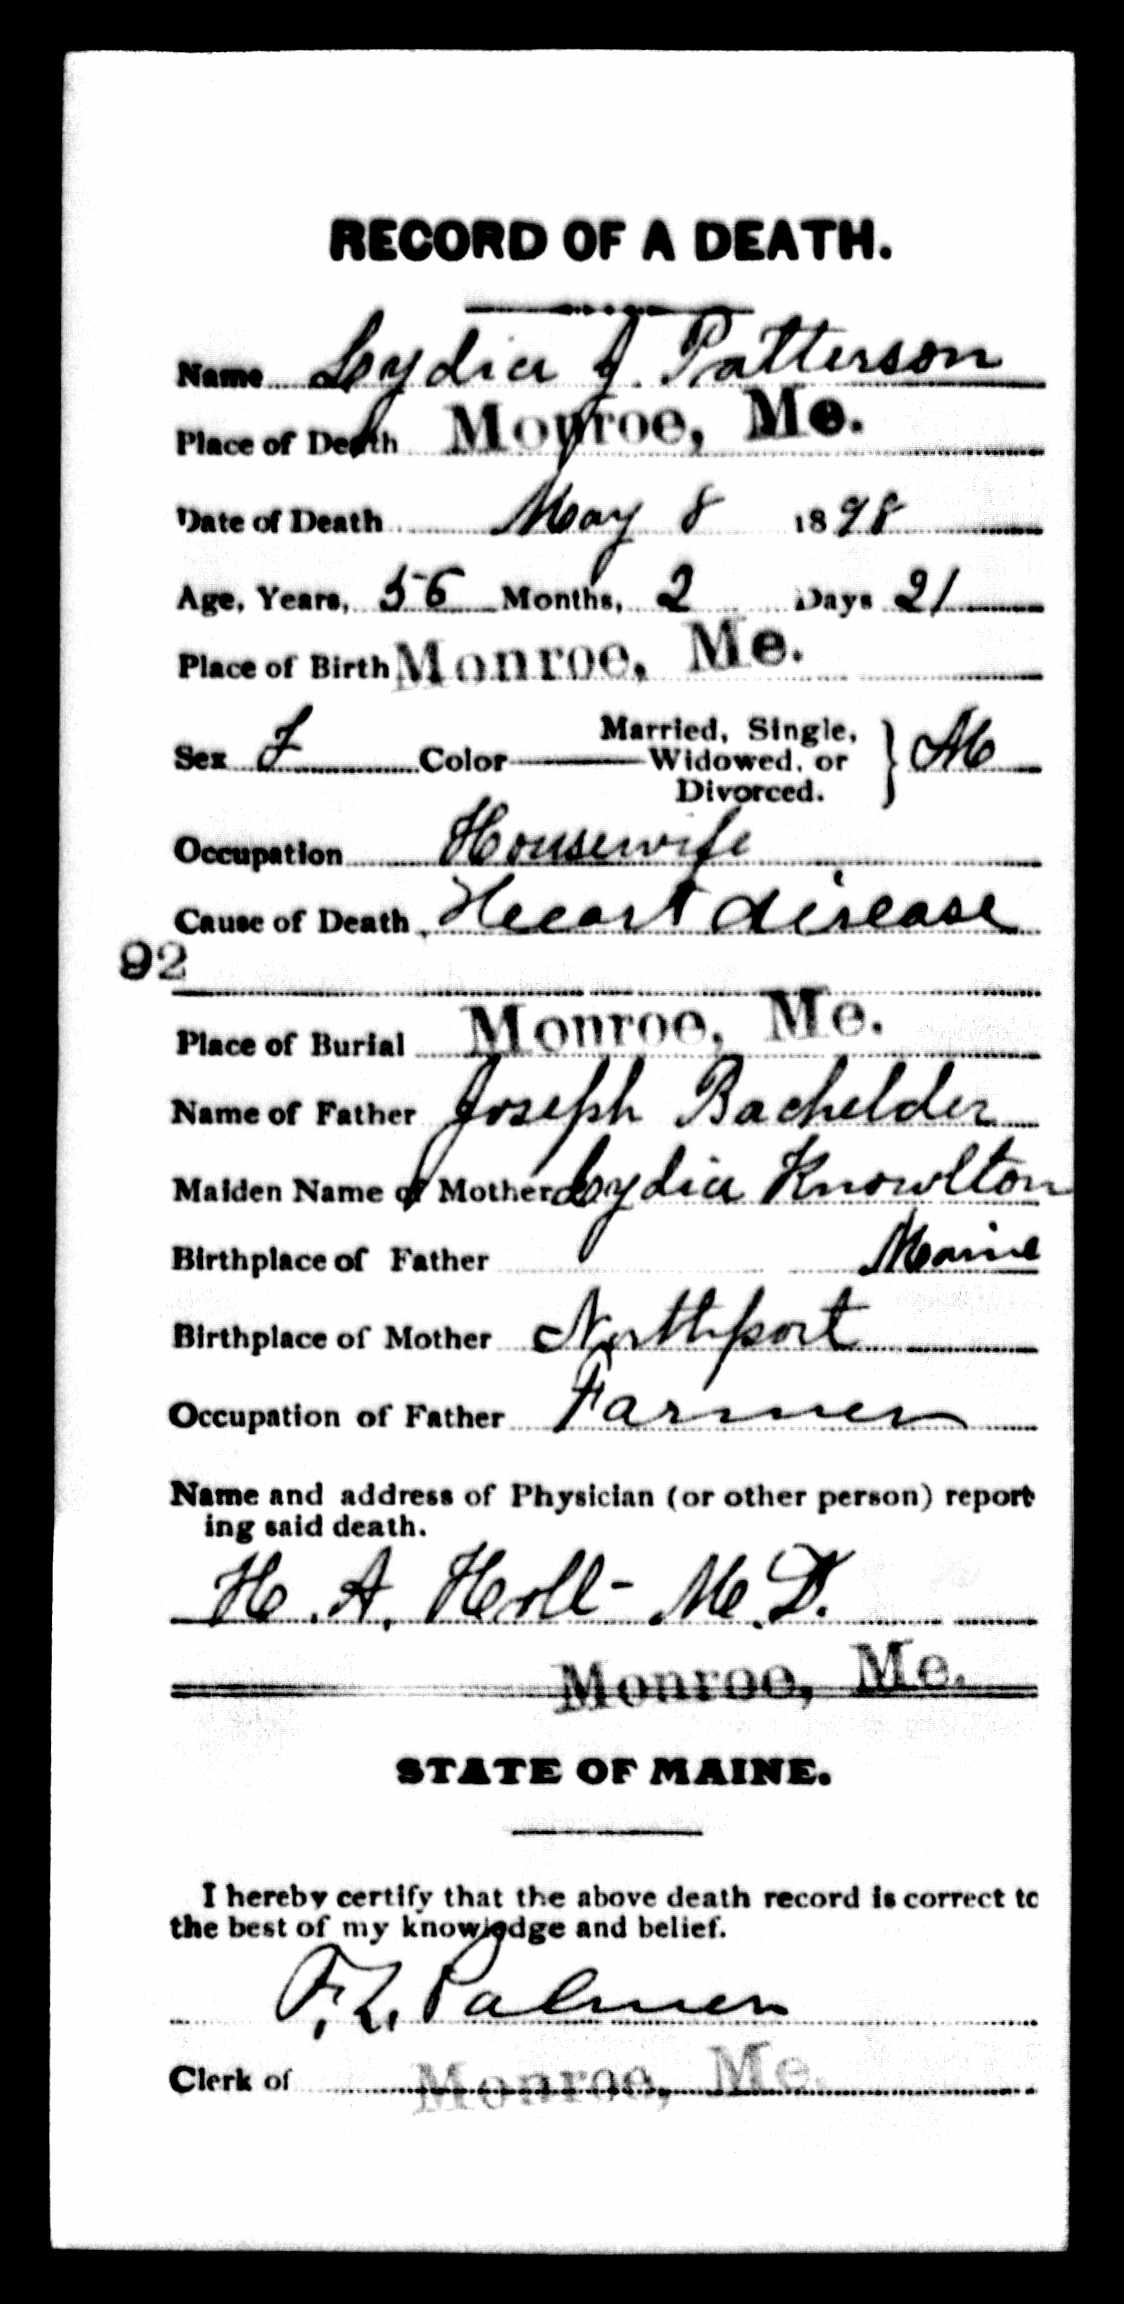 RECORD OF A DEATH.
Name Lydia J. Patterson
Place of Death Monroe, Me.
Date of Death May 8 1898
Age, Years, 56 Months, 2 Days 21
Place of Birth Monroe, Me.
Sex F Color Married, Single, Widowed, or Divorced. } M
Occupation Housewife
Cause of Death Heart disease
92
Place of Burial Monroe, Me.
Name of Father Joseph Bachelder
Maiden Name of Mother Lydia Knowlton
Birthplace of Father Maine
Birthplace of Mother Northport
Occupation of Father Farmer
Name and address of Physician (or other person) report
ing said death.
H. A. Holt - M.D.
Monroe, Me.
STATE OF MAINE.
I hereby certify that the above death record is correct to
the best of my knowledge and belief.
F. L. Palmer
Clerk of Monroe, Me.